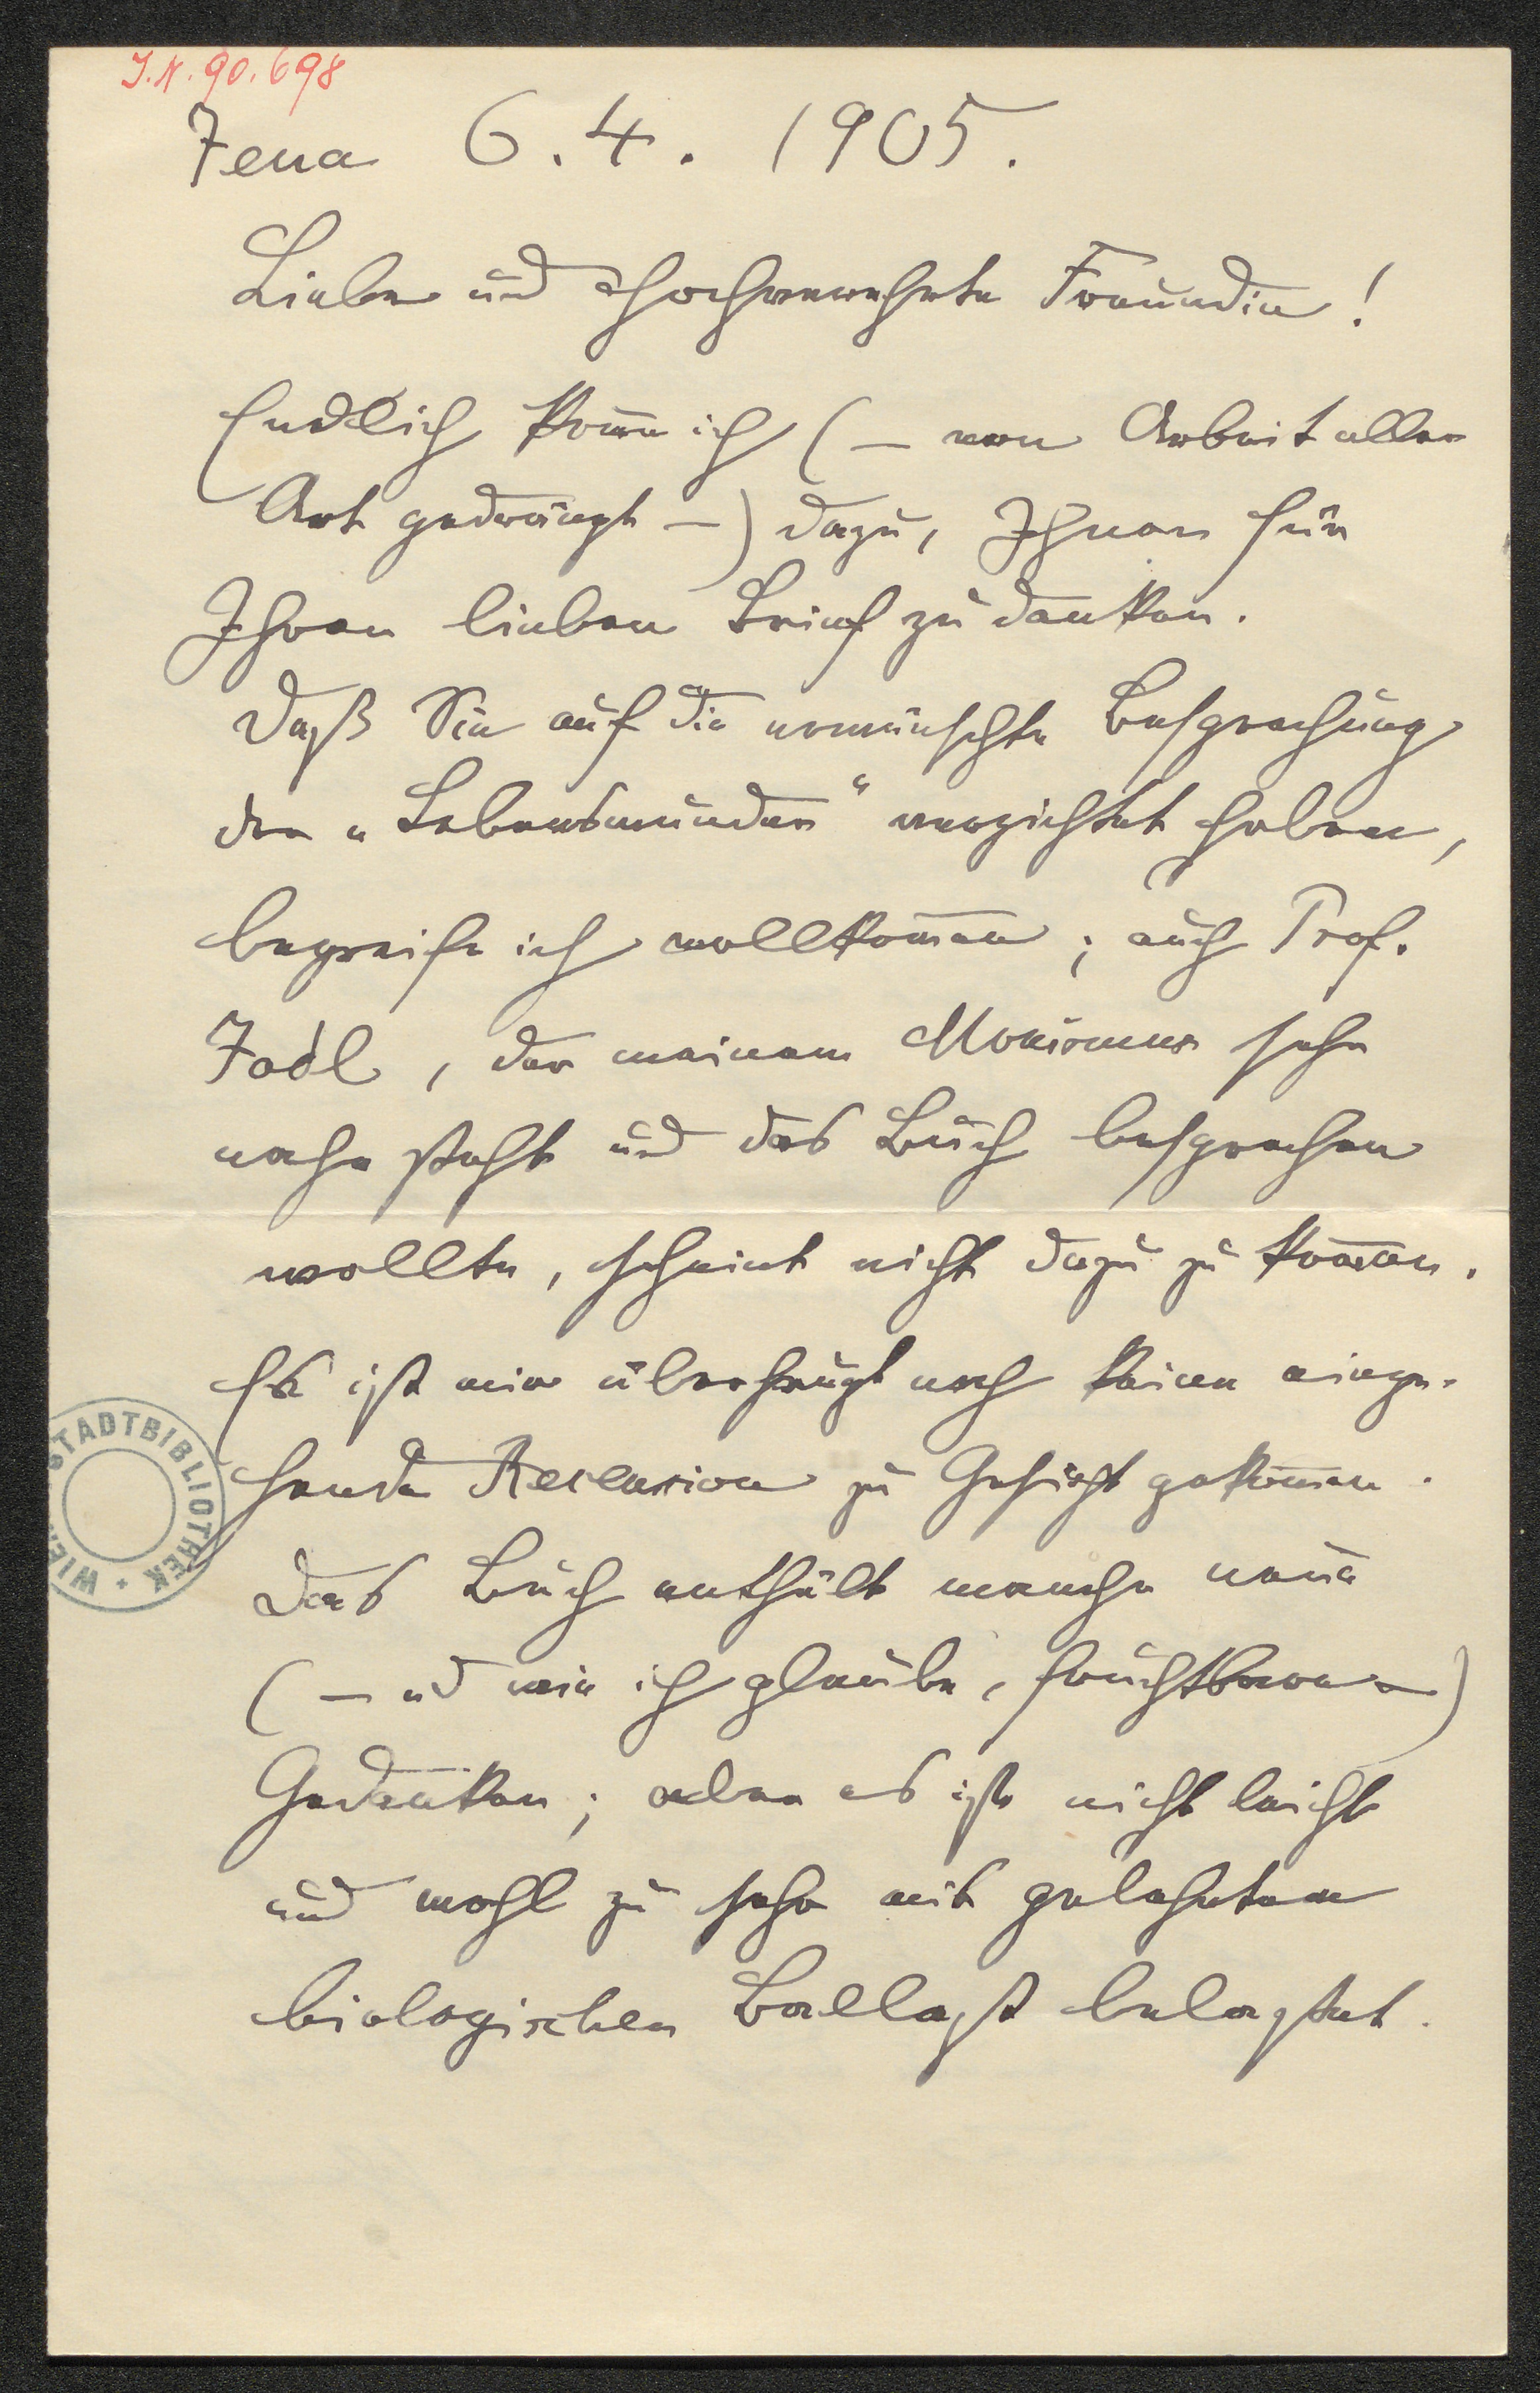 J.N. 90.698
Jena 6. 4. 1905.
Liebe und hochverehrte Freundin!
Endlich kom̄e ich (– von Arbeit aller
Art gedrängt –) dazu, Ihnen für
Ihren lieben Brief zu danken.
Daß Sie auf die erwünschte Besprechung
der „Lebenswunder“ verzichtet haben,
begreife ich vollkom̄en; auch Prof.
Jodl, der meinem Monismus sehr
nahe steht und das Buch besprechen
wollte, scheint nicht dazu zu kom̄en.
Es ist mir überhaupt noch keine einge-
hende Recension zu Gesicht gekom̄en.
Das Buch enthält manche neue
(– ud wie ich glaube, fruchtbare –)
Gedanken; aber es ist nicht leicht
und wohl zu sehr mit gelehrtem
biologischen Ballast belastet.
STADTBIBLIOTHEK • WIEN